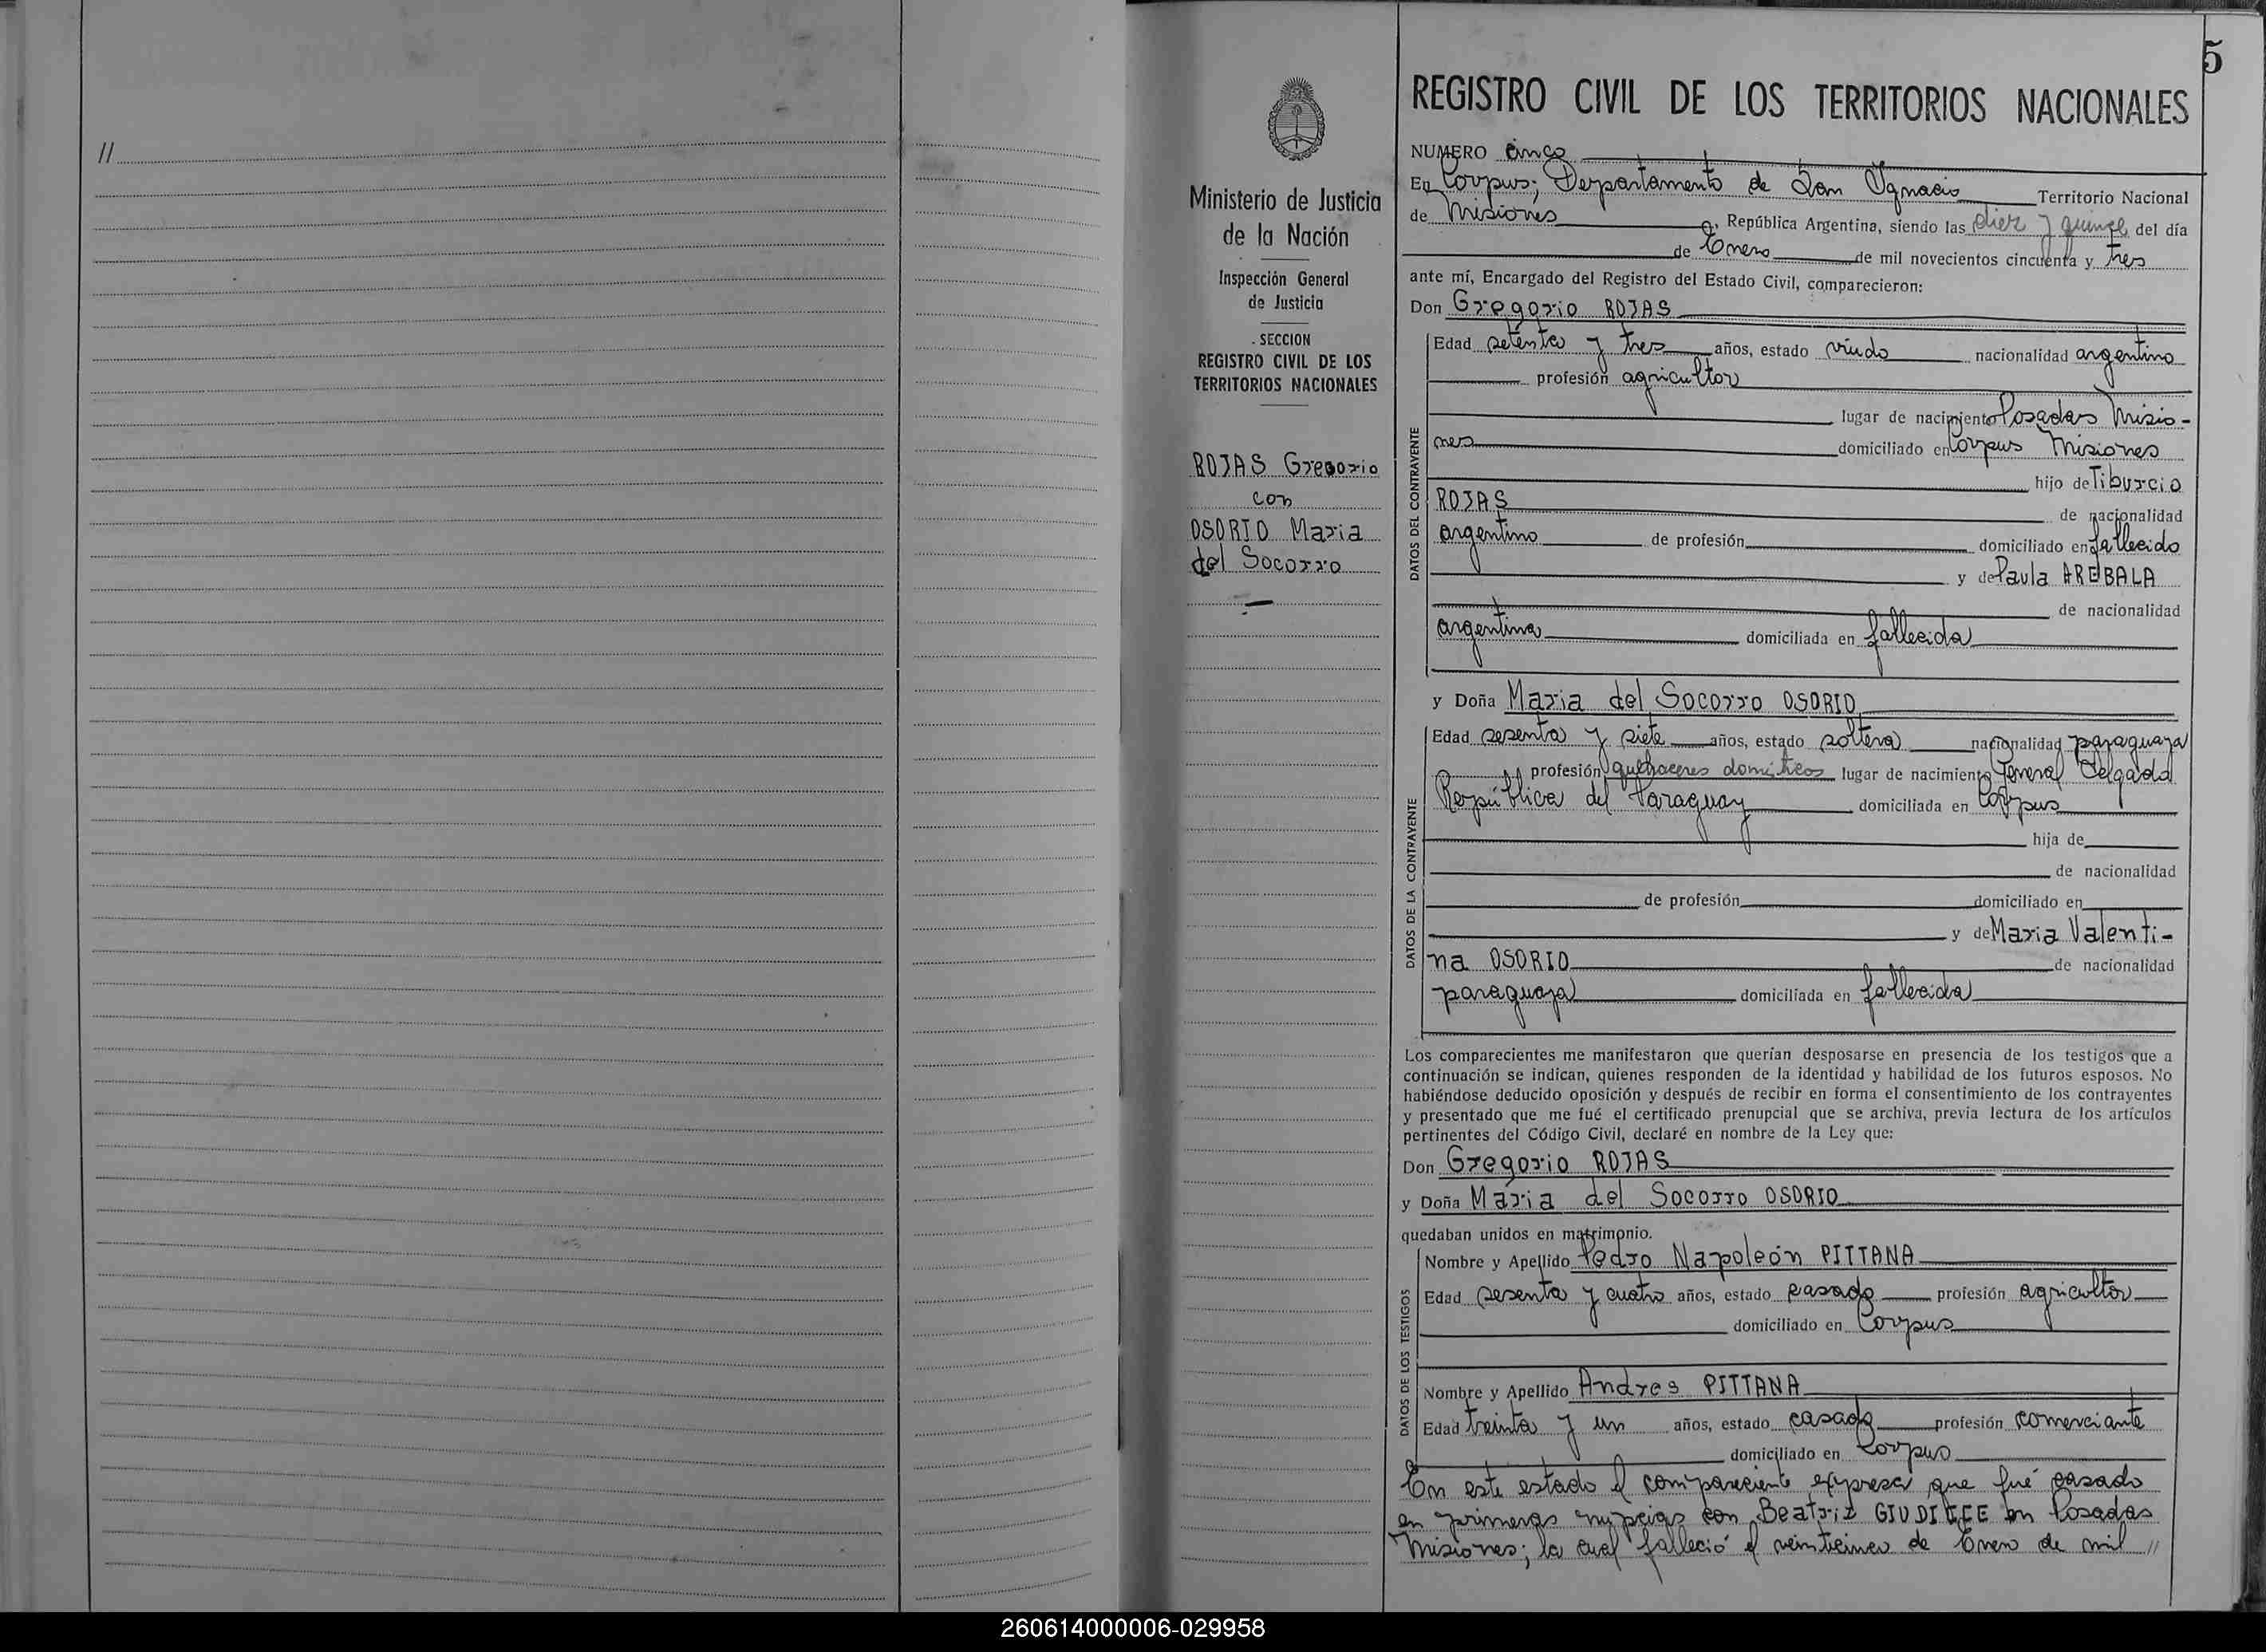 //
5
Ministerio de Justicia
de la Nación
Inspección General
de Justicia
SECCION
REGISTRO CIVIL DE LOS
TERRITORIOS NACIONALES
ROJAS Gregorio
con
OSORIO Maria
del Socorro
REGISTRO CIVIL DE LOS TERRITORIOS NACIONALES
NUMERO cinco
En Corpus; Departamento de San Ignacio Territorio Nacional
de Misiones, República Argentina, siendo las diez y quince del día
de Enero de mil novecientos cincuenta y tres
ante mí, Encargado del Registro del Estado Civil, comparecieron:
Don Gregorio ROJAS
DATOS DEL CONTRAYENTE
Edad setenta y tres años, estado viudo nacionalidad argentino
profesión agricultor
lugar de nacimiento Posadas Misio-
nes domiciliado en Corpus Misiones
hijo de Tiburcio
ROJAS de nacionalidad
argentino de profesión domiciliado en fallecido
y de Paula
de nacionalidad
argentina domiciliada en fallecida
y Doña Maria del Socorro OSORIO
DATOS DE LA CONTRAYENTE
Edad sesenta y siete años, estado soltera nacionalidad paraguaya
profesión quehaceres domésticos lugar de nacimiento General Delgado
República del Paraguay domiciliada en Corpus
hija de
de nacionalidad
de profesión domiciliado en
y de Maria Valenti-
na OSORIO de nacionalidad
paraguaya domiciliada en fallecida
Los comparecientes me manifestaron que querían desposarse en presencia de los testigos que a
continuación se indican, quienes responden de la identidad y habilidad de los futuros esposos. No
habiéndose deducido oposición y después de recibir en forma el consentimiento de los contrayentes
y presentado que me fué el certificado prenupcial que se archiva, previa lectura de los artículos
pertinentes del Código Civil, declaré en nombre de la Ley que:
Don Gregorio ROJAS
y Doña Maria del Socorro OSORIO
quedaban unidos en matrimonio.
DATOS DE LOS TESTIGOS
Nombre y Apellido Pedro Napoleón PITTANA
Edad sesenta y cuatro años, estado casado profesión agricultor
domiciliado en Corpus
Nombre y Apellido Andres PITTANA
Edad treinta y un años, estado casado profesión comerciante
domiciliado en Corpus
En este estado el compareciente expresa que fué casado
en primeras nupcias con Beatriz en Posadas
Misiones; la cual falleció el veinticinco de Enero de mil //
260614000006-029958